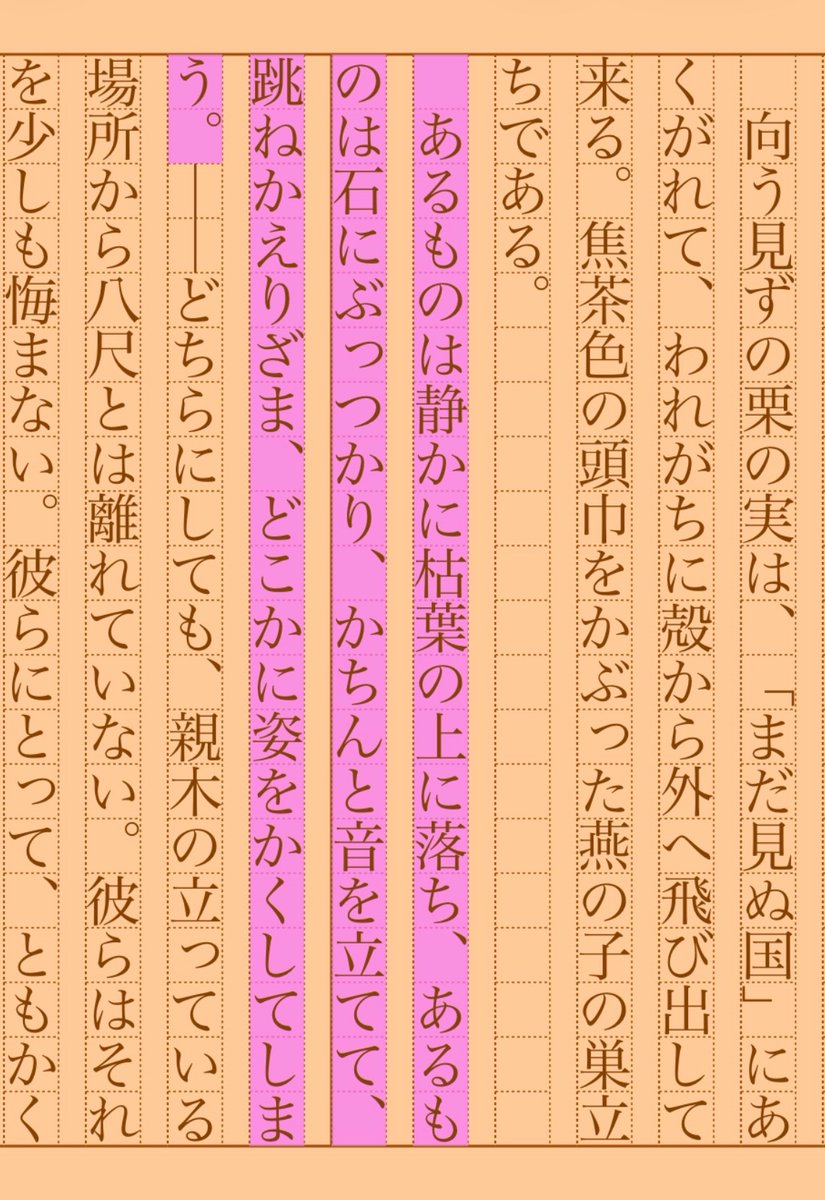 向う見ずの栗の実は、「まだ見ぬ国」にあ
くがれて、われがちに殻から外へ飛び出して
来る。焦茶色の頭巾をかぶった燕の子の巣立
ちである。
　あるものは静かに枯葉の上に落ち、あるも
のは石にぶっつかり、かちんと音を立てて、
跳ねかえりざま、どこかに姿をかくしてしま
う。――どちらにしても、親木の立っている
場所から八尺とは離れていない。彼らはそれ
を少しも悔まない。彼らにとって、ともかく